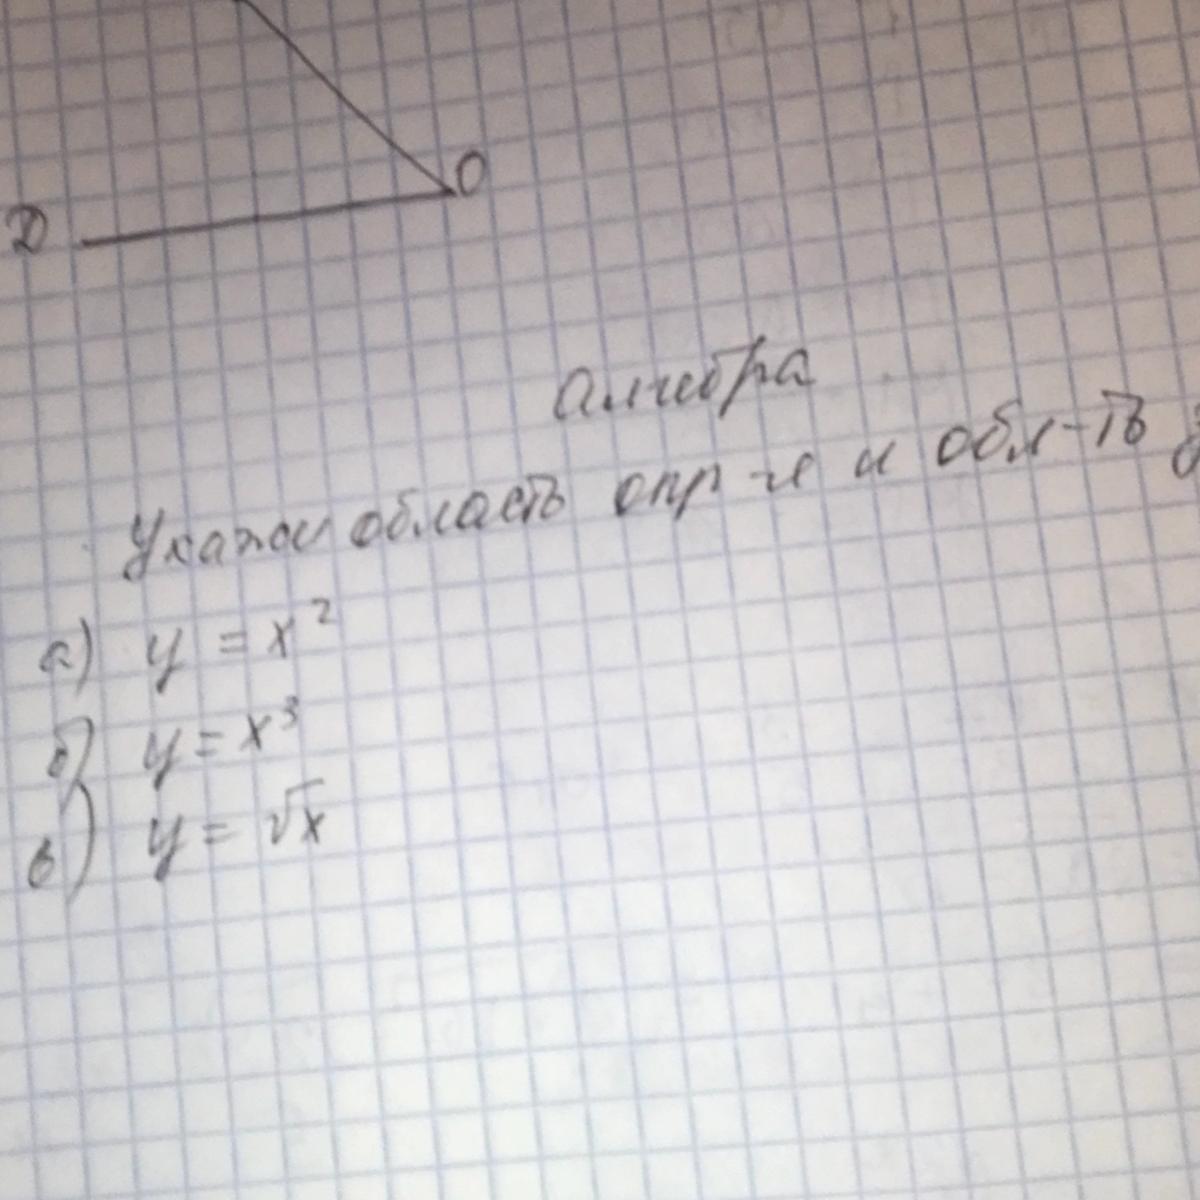 О
D
Алгебра
Укажи область опр-я и обл-ть
а) y = x²
б) y = x³
в) y = √x